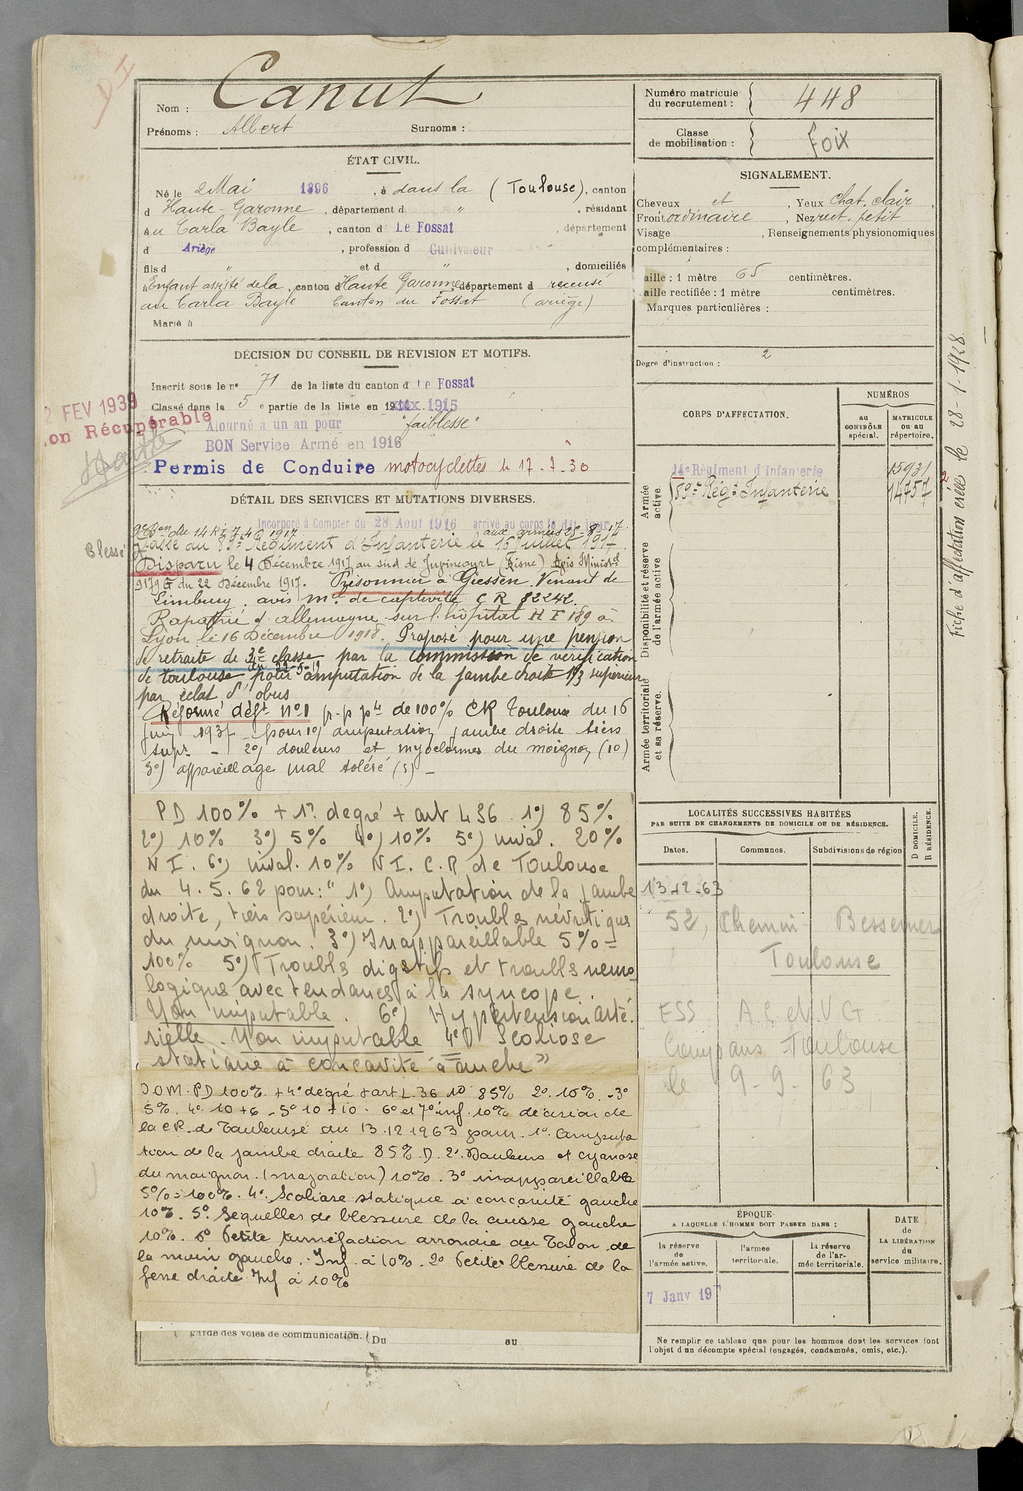 Nom : Canut
Prénoms : Albert Surnoms :
ÉTAT CIVIL.
Né le 2 Mai 1896, à dans la (Toulouse), canton
d Haute-Garonne, département d " , résidant
au Carla Bayle, canton d Le Fossat, département
d Ariège, profession d Cultivateur
fils d " et d " , domiciliés
Enfant assisté de la, canton d Haute Garonne département d recensé
au Carla Bayle Canton du Fossat (ariège)
Marié à
DÉCISION DU CONSEIL DE REVISION ET MOTIFS.
Inscrit sous le nº 71 de la liste du canton d Le Fossat
Classé dans la 5 e partie de la liste en 1915
2 FEV 1939
Non Récupérable
Ajourné à un an pour "faiblesse"
BON Service Armé en 1916
Permis de Conduire motocyclettes le 17.7.30
DÉTAIL DES SERVICES ET MUTATIONS DIVERSES.
Incorporé à Compter du 28 Aout 1916 arrivé au corps le dit jour
Passé au 83e Régiment d'Infanterie le 16 juillet 1917.
Blessé
Disparu le 4 Décembre 1917 au sud de Juvincourt (Aisne) Avis Ministl
9179 G du 22 Décembre 1917. Prisonnier à Giessen. Venant de
Limburg. avis ml de captivité CR 82242.
Rapatrié d'allemagne sur l'hôpital H F 189 à
Lyon le 16 Décembre 1918. Proposé pour une pension
de retraite de 3e classe par la commission de vérification
de toulouse pour amputation de la jambe droite 1/3 supérieur
par éclat d'obus
Réformé déft Nº1 p-p pte de 100% CR Toulouse du 16
1937 pour 1º) amputation jambe droite tiers
supr - 2º) douleurs et myoclonies du moignon (10)
3º) appareillage mal toléré (5) -
PD 100% + 1º degré + art L36 1º) 85%
2º) 10% 3º) 5% 4º) 10% 5º) inval. 20%
N I. 6º) inval. 10% N I. C.R de Toulouse
du 4.5.62 pour: " 1º) Amputation de la jambe
droite, tiers supérieur. 2º) Troubles névritiques
du moignon. 3º) Inappareillable 5% =
100% 5º) Troubles digestifs et troubles neuro
logiques avec tendances à la syncope.
Non imputable. 6º) Hypertension arté-
rielle. Non imputable 4º) Scoliose
statique à concavité gauche"
DOM. PD 100% + 4º degré + art L.36 1º 85% 2º. 10%. 3º
5%. 4º. 10+6 - 5º 10+10. 6º et 7º inf. 10% décision de
la CR. de Toulouse du 13.12.1963 pour. 1º. Amputa
tion de la jambe droite 85%. D. 2º. Douleurs et cyanose
du moignon. (majoration) 10%. 3º inappareillable
5% = 100%. 4º. Scoliose statique à concavité gauche
10%. 5º. Séquelles de blessure de la cuisse gauche
10%. 6º Petite tuméfaction arrondie au talon de
la main gauche. Inf. à 10%. 2º Petite blessure de la
fesse droite Inf à 10%
garde des voies de communication. Du au
Numéro matricule du recrutement : 448
Classe de mobilisation : Foix
SIGNALEMENT.
Cheveux et , Yeux chat. clair ,
Front ordinaire , Nez rect. petit
Visage , Renseignements physionomiques
complémentaires :
aille : 1 mètre 65 centimètres.
aille rectifiée : 1 mètre centimètres.
Marques particulières :
Degré d'instruction : 2
CORPS D'AFFECTATION.
NUMÉROS
AU CONTRÔLE spécial.
MATRICULE OU AU répertoire.
Armée active
14e Régiment d'Infanterie 15931
83e Régt Infanterie 14757
Disponibilité et réserve de l'armée active.
Armée territoriale et sa réserve.
Fiche d'affectation créée le 28-1-1928.
LOCALITÉS SUCCESSIVES HABITÉES
PAR SUITE DE CHANGEMENTS DE DOMICILE OU DE RÉSIDENCE.
Dates. Communes. Subdivisions de région
D DOMICILE. R RÉSIDENCE.
13-12-63
52, Chemin Bessemer
Toulouse
ESS A C et V G
Compans Toulouse
le 9-9-63
ÉPOQUE
A LAQUELLE L'HOMME DOIT PASSER DANS :
la réserve de l'armée active.
l'armée territoriale.
la réserve de l'armée territoriale.
DATE de LA LIBÉRATION du service militaire.
7 Janv 19
Ne remplir ce tableau que pour les hommes dont les services font
l'objet d'un décompte spécial (engagés, condamnés, omis, etc.).